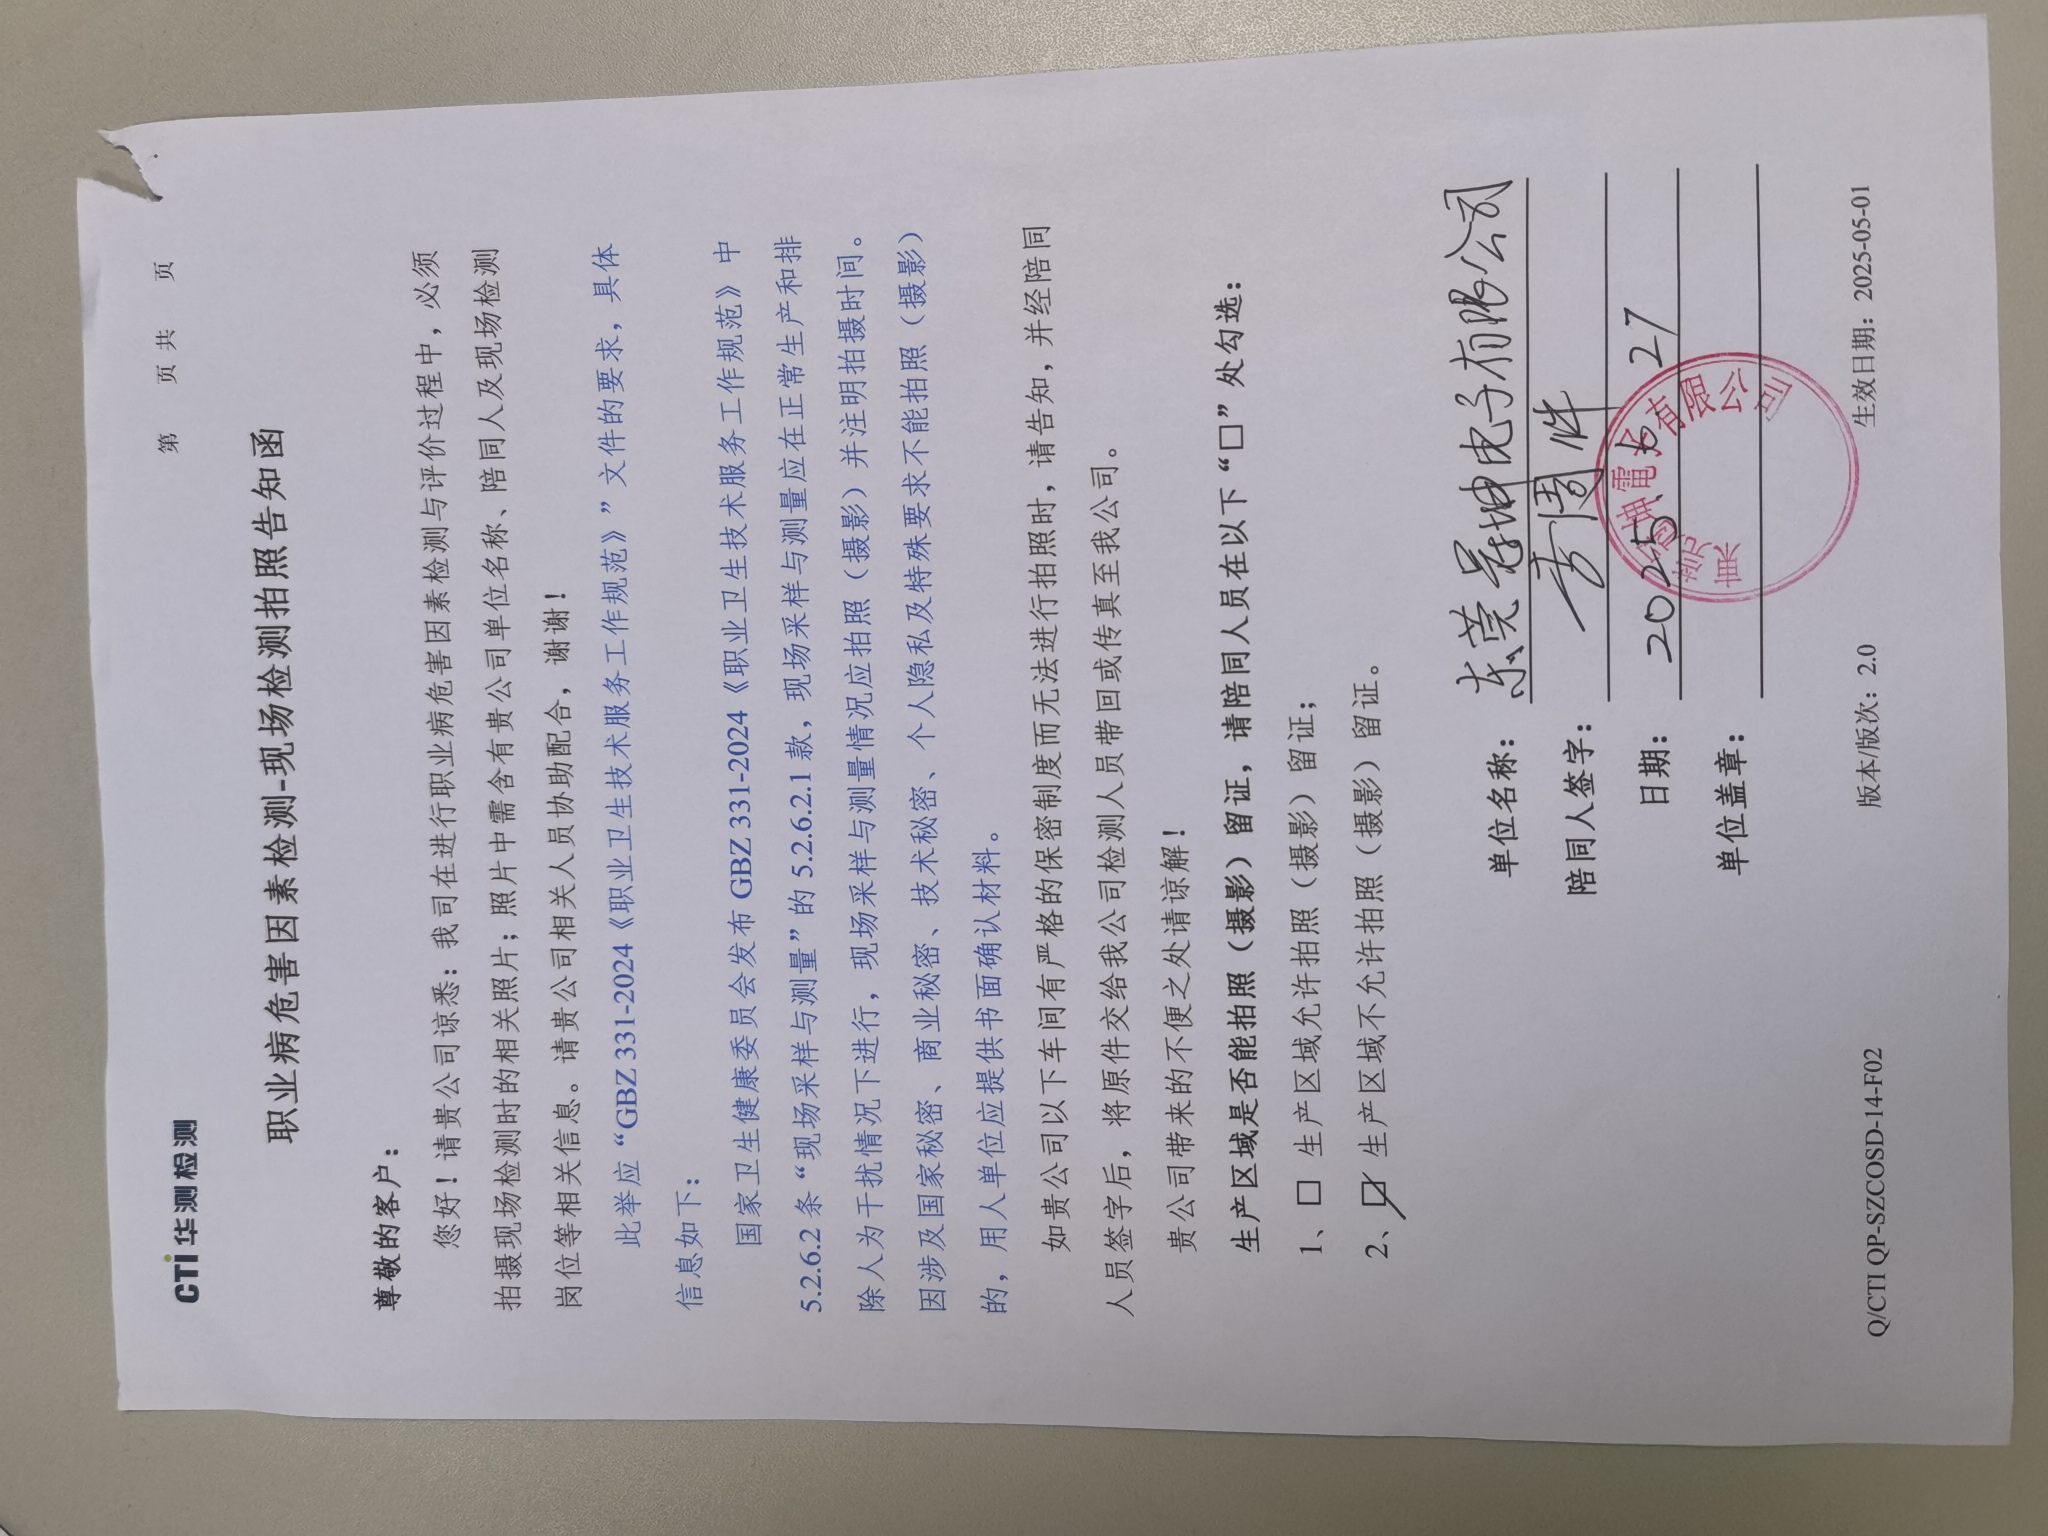 CTI华测检测
第 页 共 页
职业病危害因素检测-现场检测拍照告知函
尊敬的客户：
您好！请贵公司谅悉：我司在进行职业病危害因素检测与评价过程中，必须
拍摄现场检测时的相关照片；照片中需含有贵公司单位名称、陪同人及现场检测
岗位等相关信息。请贵公司相关人员协助配合，谢谢！
此举应“GBZ 331-2024《职业卫生技术服务工作规范》”文件的要求，具体
信息如下：
国家卫生健康委员会发布 GBZ 331-2024《职业卫生技术服务工作规范》中
5.2.6.2 条“现场采样与测量”的 5.2.6.2.1 款，现场采样与测量应在正常生产和排
除人为干扰情况下进行，现场采样与测量情况应拍照（摄影）并注明拍摄时间。
因涉及国家秘密、商业秘密、技术秘密、个人隐私及特殊要求不能拍照（摄影）
的，用人单位应提供书面确认材料。
如贵公司以下车间有严格的保密制度而无法进行拍照时，请告知，并经陪同
人员签字后，将原件交给我公司检测人员带回或传真至我公司。
贵公司带来的不便之处请谅解！
生产区域是否能拍照（摄影）留证，请陪同人员在以下“□”处勾选：
1、□ 生产区域允许拍照（摄影）留证；
2、☑ 生产区域不允许拍照（摄影）留证。
单位名称：东莞冠坤电子有限公司
陪同人签字：
日期：2025.6.27
单位盖章：
東莞冠坤電子有限公司
Q/CTI QP-SZCOSD-14-F02 版本/版次：2.0 生效日期：2025-05-01